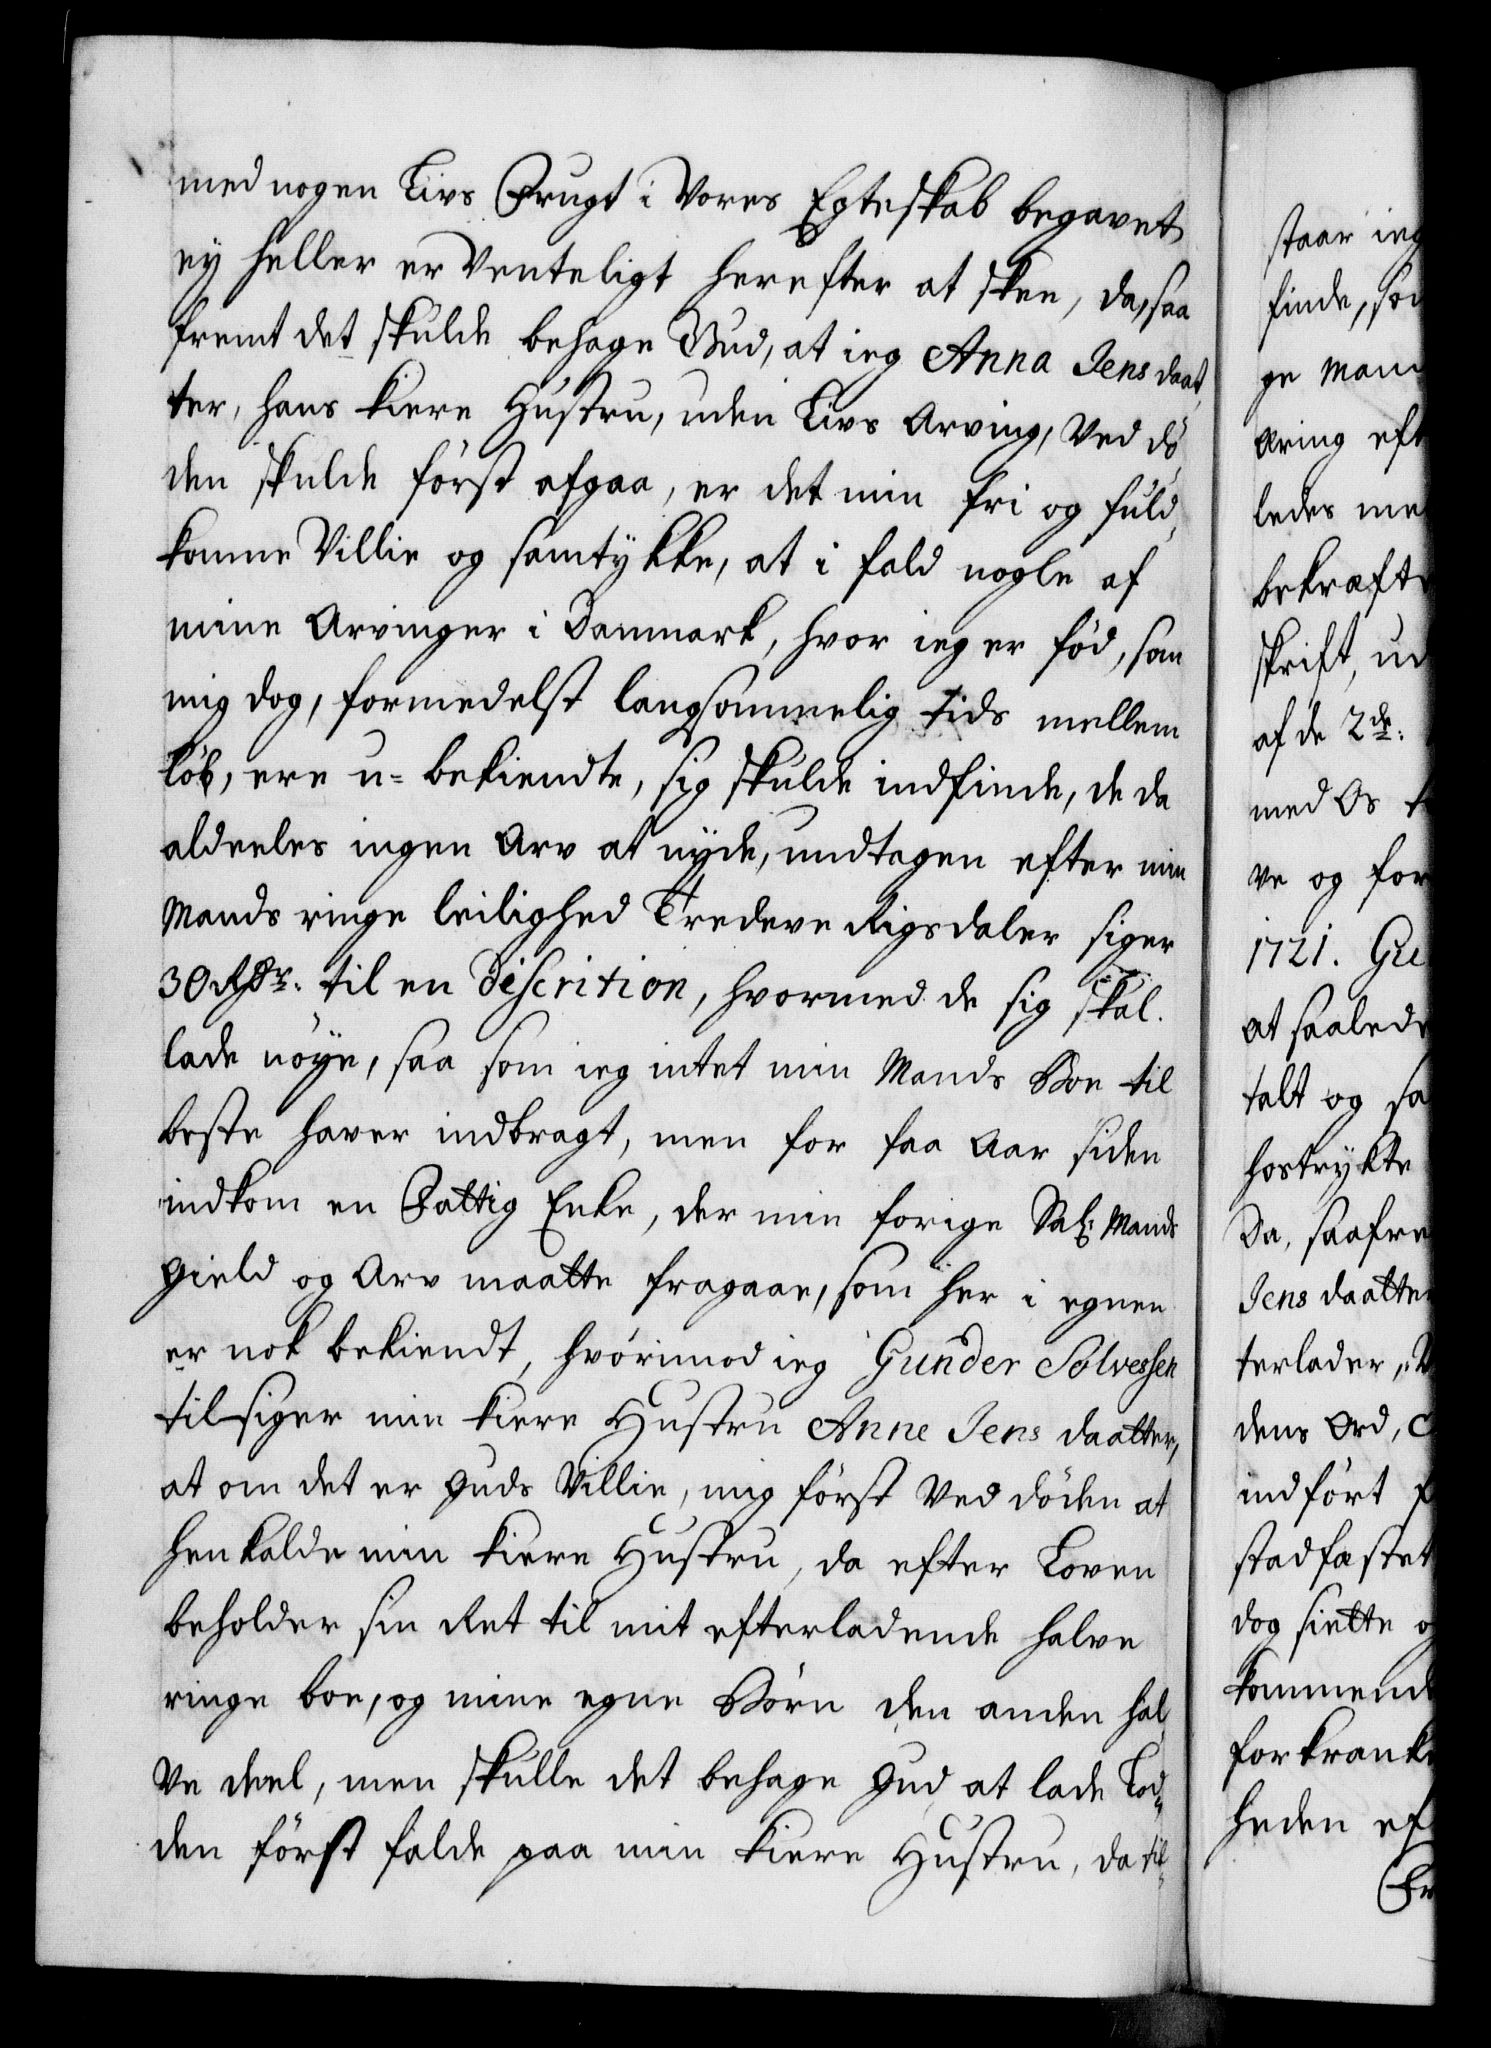 med nogen Livs Frugt i Vores Egteskab begavet
ey heller er Venteligt herefter at skee, da, saa
fremt det skulde behage Gud, at ieg Anna Jens daat,
ter, hans kiere Hustru, uden Livs Arving, Ved dö,
den skulde först afgaa, er det min fri og fuld,
komne Villie og samtykke, at i fald nogle af
mine Arvinger i Danmark, hvor ieg er föd, som
mig dog, formedelst langsommelig tids mellem
löb, ere u=bekiendte, sig skulde indfinde, de da
aldeeles ingen Arv at nyde, undtagen efter min
Mands ringe leilighed Tredeve Rigsdaler siger
30 Rdr. til en discrition, hvormed de sig skal
lade nöye, saa som ieg intet min Mands Boe til
beste haver indbragt, men for faa Aar siden
indkom en Fattig Enke, der min forige Sal: Mands
gield og Arv maatte fragaae, som her i egnen
er nok bekiendt, hvörimod ieg Gunder Solvessen
tilsiger min kiere Hustru Anne Jens daatter,
at om det er Guds Villie, mig först Ved döden at
henkalde min kiere Hustru, da efter Loven
beholder sin Ret til mit efterladende halve
ringe boe, og mine egne Börn den anden hal,
Ve deel, men skulle det behage Gud at lade Lod,,
den först falde paa min kiere Hustru, da til-
staar ieg
finde, so
ge Man
Aring eft
ledes me
bekraft
skrift, ud
af de 2de:
med Os
ve og for
1721. Gu
at saalede
talt og sa
hostrykte
Da, saafre
Jens daatter
terlader,
dens Ord,
indfört
stadfæstet
dog siette
kommend
forkrank
heden ef